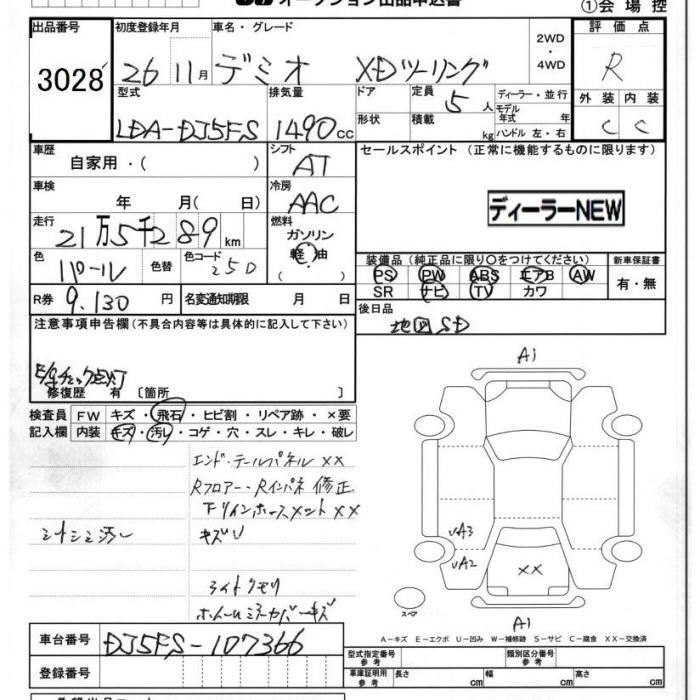 オークション出品申込書
①会場控
出品番号 初度登録年月 車名・グレード 評価点
3028 26 11月 デミオ XDツーリング 2WD・4WD R
型式 排気量 ドア 定員 5人 ディーラー・並行 外装 内装
LDA-DJ5FS 1490cc 形状 積載 kg モデル年式 年 ハンドル 左・右 C C
車歴 シフト セールスポイント (正常に機能するものに限ります)
自家用・( ) AT
車検 冷房
年 月( 日) AAC ディーラーNEW
走行 燃料
21万5千289km ガソリン
軽油
・( )
装備品 (純正品に限り○をつけてください) 新車保証書
色 パール 色替 色コード 25D
PS PW ABS エアB AW 有・無
SR ナビ TV カワ
R券 9,130円 名変通知期限 月 日
後日品
地図SD
注意事項申告欄 (不具合内容等は具体的に記入して下さい)
チェック点灯
修復歴 有 〔箇所 〕
検査員 FW キズ・飛石・ヒビ割・リペア跡・×要
記入欄 内装 キズ・汚レ・コゲ・穴・スレ・キレ・破レ
エンド・テールパネル ××
Rフロアー・Rインパネ 修正
下リインホースメント ××
キズU
ライトクモリ
A1
UA3
UA2
××
スペア
A1
A-キズ E-エクボ U-凹み W-補修跡 S-サビ C-腐食 XX-交換済
車台番号 DJ5FS-107366
型式指定番号 参考 類別区分番号 参考
登録番号
車庫証明用 参考 長さ cm 幅 cm 高さ cm